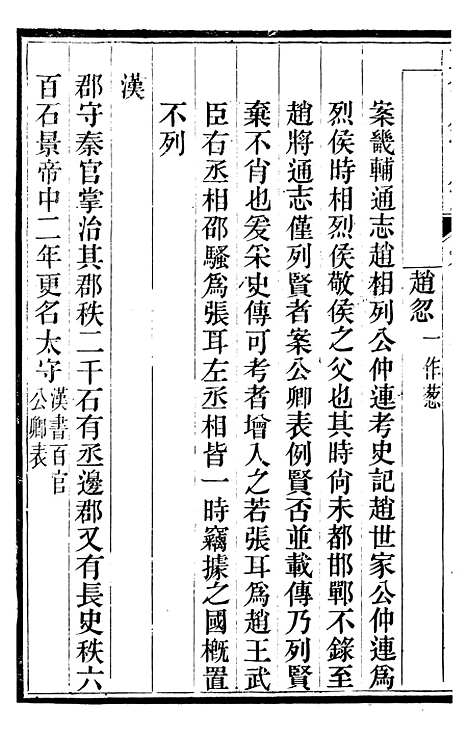 趙忽一作蔥
案畿輔通志趙相列公仲連考史記趙世家公仲連爲
烈侯時相烈侯敬侯之父也其時尙未都邯鄲不錄至
趙將通志僅列賢者案公卿表例賢否並載傳乃列賢
棄不肖也爰采史傳可考者增入之若張耳爲趙王武
臣右丞相邵騷爲張耳左丞相皆一時竊據之國槪置
不列
漢
郡守秦官掌治其郡秩二千石有丞邊郡又有長史秩六
百石景帝中二年更名太守漢書百官公卿表